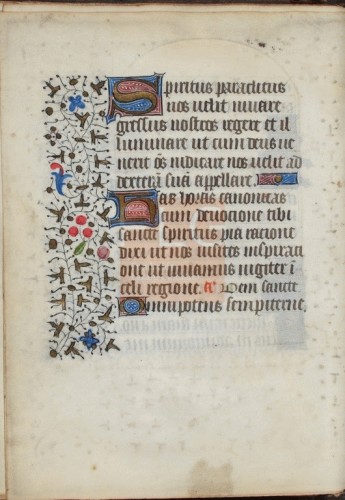 Spiritus paraclitus
nos velit iuvare
gressus nostros regere et il
luminare ut cum deus ve
nerit os iudicare nos velit ad
dexterā suā appellare.
Has horas canonicas
cum devocione tibi
sancte spiritus pia racione
dixi ut nos visites inspiraci
one ut vivamus iugiter ī
celi regione. Oem sancte
Omnipotens sempiterne.